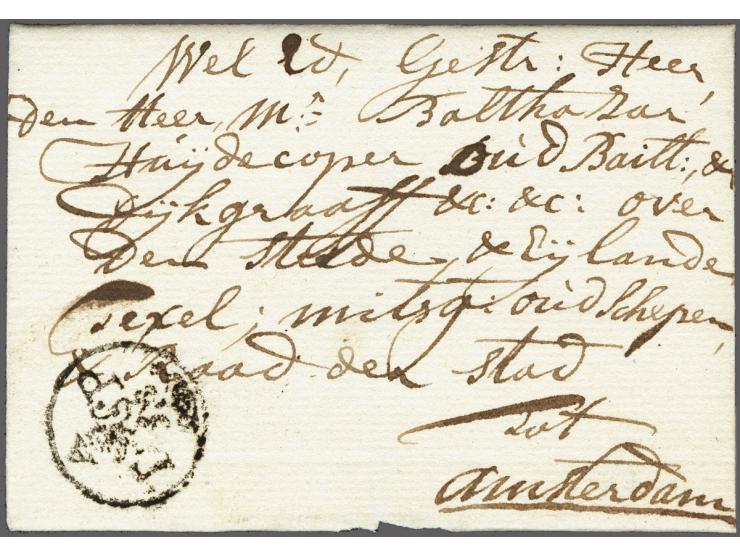 Wel Ed, Gestr: Heer,
den Heer, Mr: Balthazar
Huÿdecoper Oùd Baill:, &
Dijkgraaff &c: &c: over
den stede, & Eÿlande
Texel; mitsg: oùd Schepen,
& Raad der stad
tot
Amsterdam